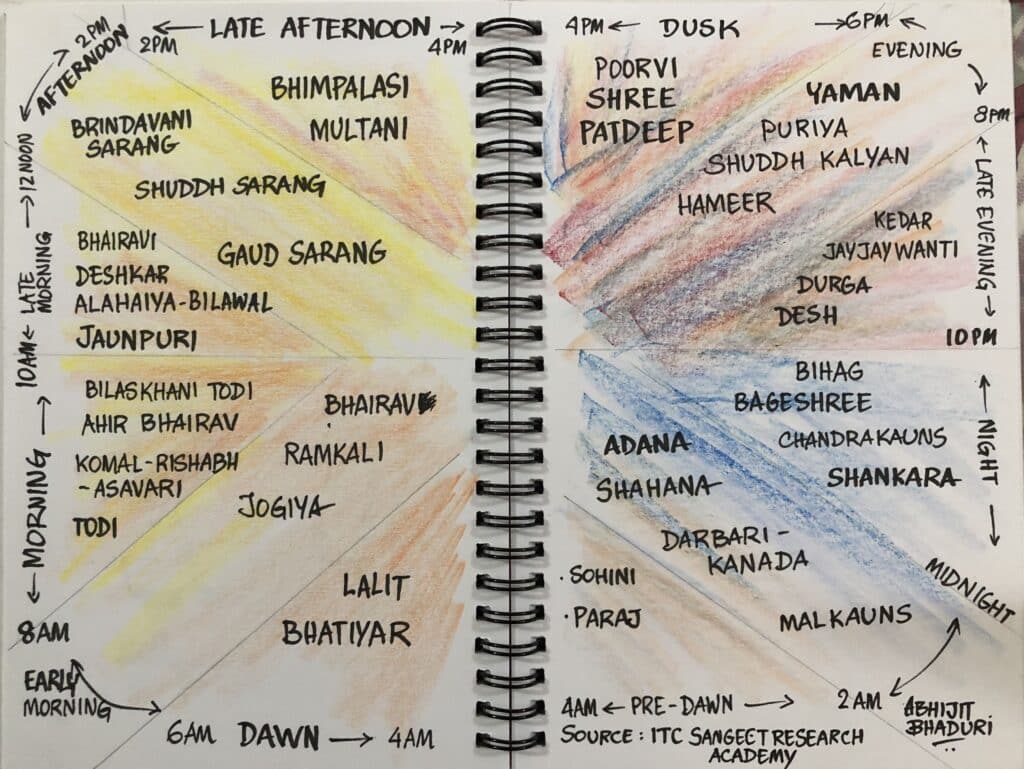 2PM ← LATE AFTERNOON → 4PM
2PM
AFTERNOON
BHIMPALASI
MULTANI
BRINDAVANI
SARANG
SHUDDH SARANG
GAUD SARANG
12 NOON
LATE
MORNING
10AM
BHAIRAVI
DESHKAR
ALAHAIYA-BILAWAL
JAUNPURI
BILASKHANI TODI
AHIR BHAIRAV
KOMAL-RISHABH
-ASAVARI
TODI
MORNING
8AM
BHAIRAV
RAMKALI
JOGIYA
LALIT
BHATIYAR
EARLY
MORNING
6AM DAWN → 4AM
4PM ← DUSK → 6PM
EVENING
8PM
POORVI
SHREE
PATDEEP
YAMAN
PURIYA
SHUDDH KALYAN
HAMEER
LATE EVENING
KEDAR
JAYJAYWANTI
DURGA
DESH
10PM
BIHAG
BAGESHREE
CHANDRAKAUNS
SHANKARA
NIGHT
MIDNIGHT
ADANA
SHAHANA
DARBARI-
KANADA
MALKAUNS
· SOHINI
· PARAJ
4AM ← PRE-DAWN → 2AM
SOURCE: ITC SANGEET RESEARCH
ACADEMY
ABHIJIT
BHADURI